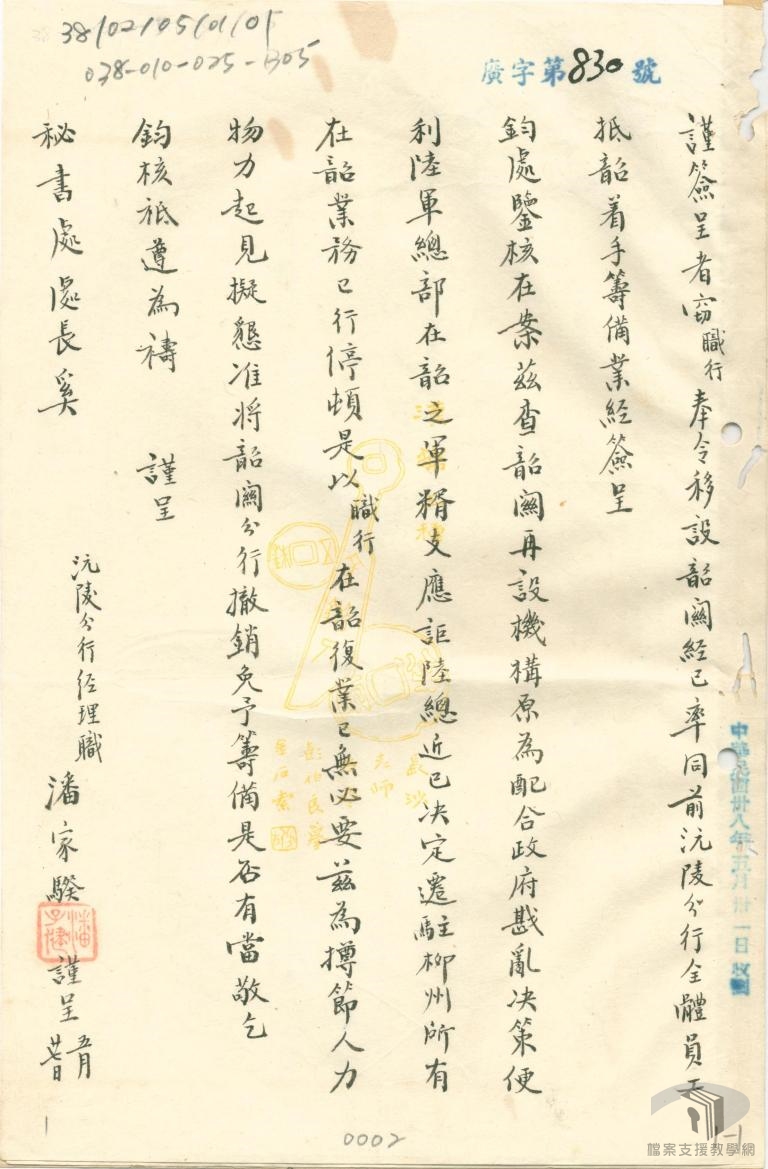 38/02/05/01/01
038-010-025-B05
廣字第830號
謹簽呈者竊職行奉令移設韶關經已率同前沅陵分行全體員工
抵韶着手籌備業經簽呈
鈞處鑒核在案茲查韶關再設機構原為配合政府戡亂决策便
利陸軍總部在韶之軍糈支應詎陸總近已决定遷駐柳州所有
在韶業務已行停頓是以職行在韶復業已無必要茲為撙節人力
物力起見擬懇准將韶關分行撤銷免予籌備是否有當敬乞
鈞核祗遵為禱 謹呈
秘書處處長奚
沅陵分行經理職潘家騤謹呈
五月廿日
中華民國卅八年五月卅一日收
0002
檔案支援教學網